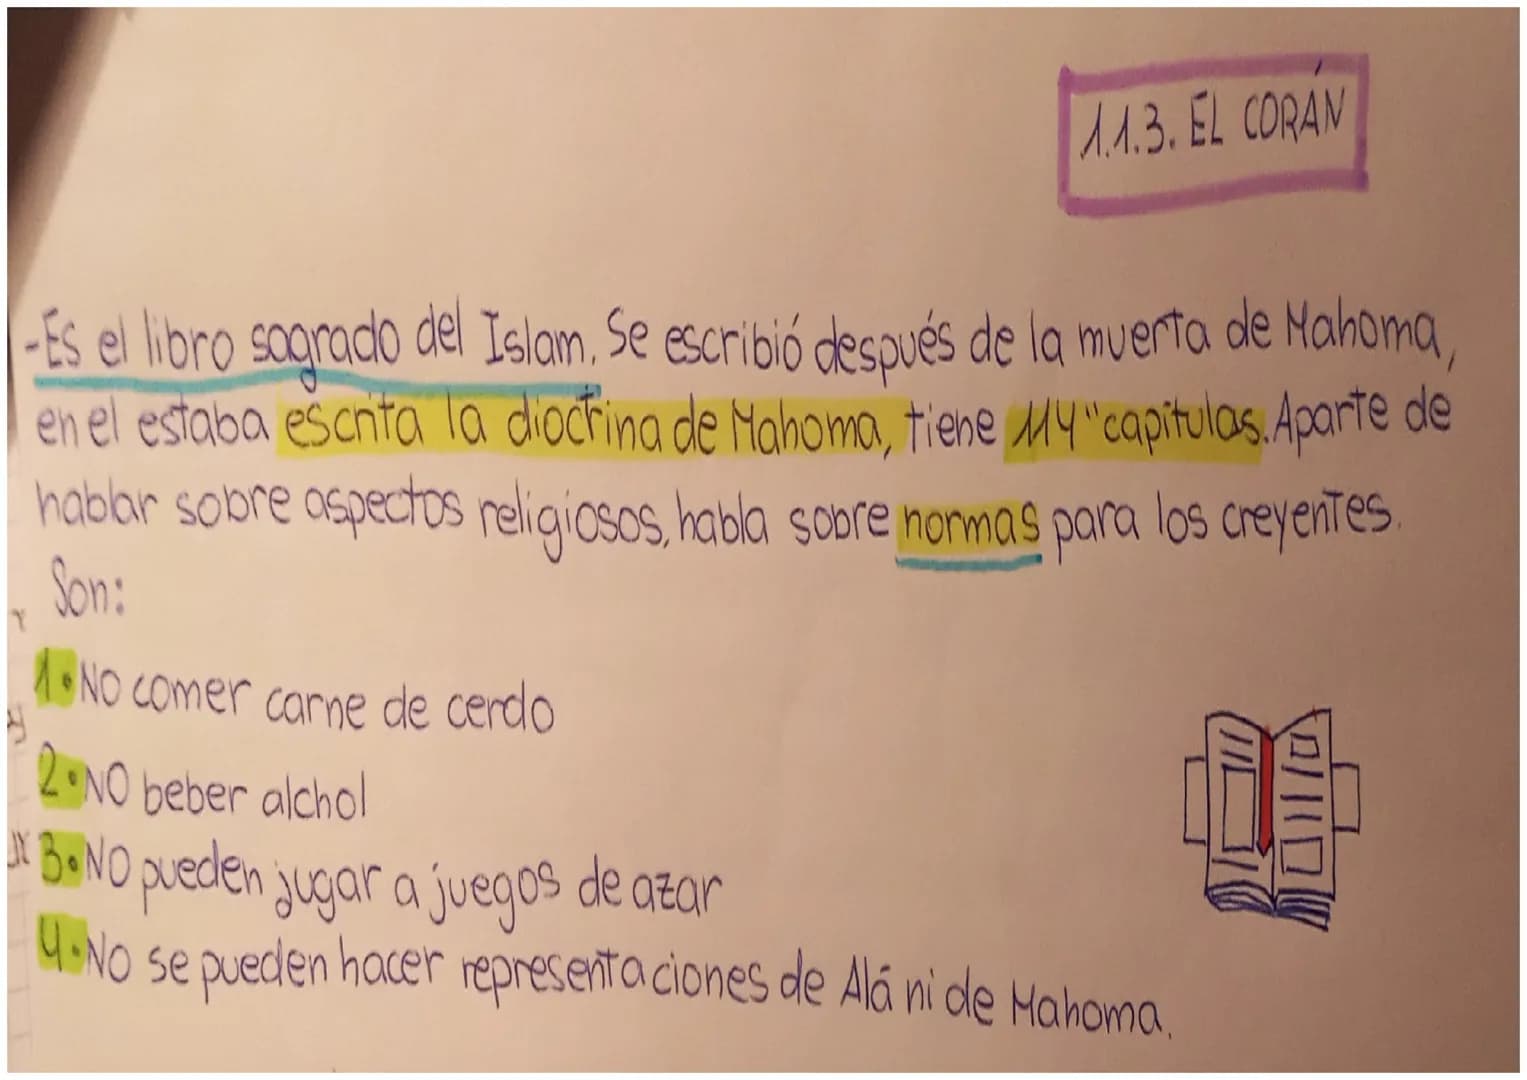 1.1.3. EL CORÁN
-Es el libro sagrado del Islam. Se escribió después de la muerta de Mahoma,
en el estaba escrita la dioctrina de Mahoma, tiene 114 "capitulas. Aparte de
hablar sobre aspectos religiosos, habla sobre normas para los creyentes.
Son:
1. NO comer carne de cerdo
2. NO beber alchol
3. NO pueden jugar a juegos de azar
4. NO se pueden hacer representaciones de Alá ni de Mahoma.